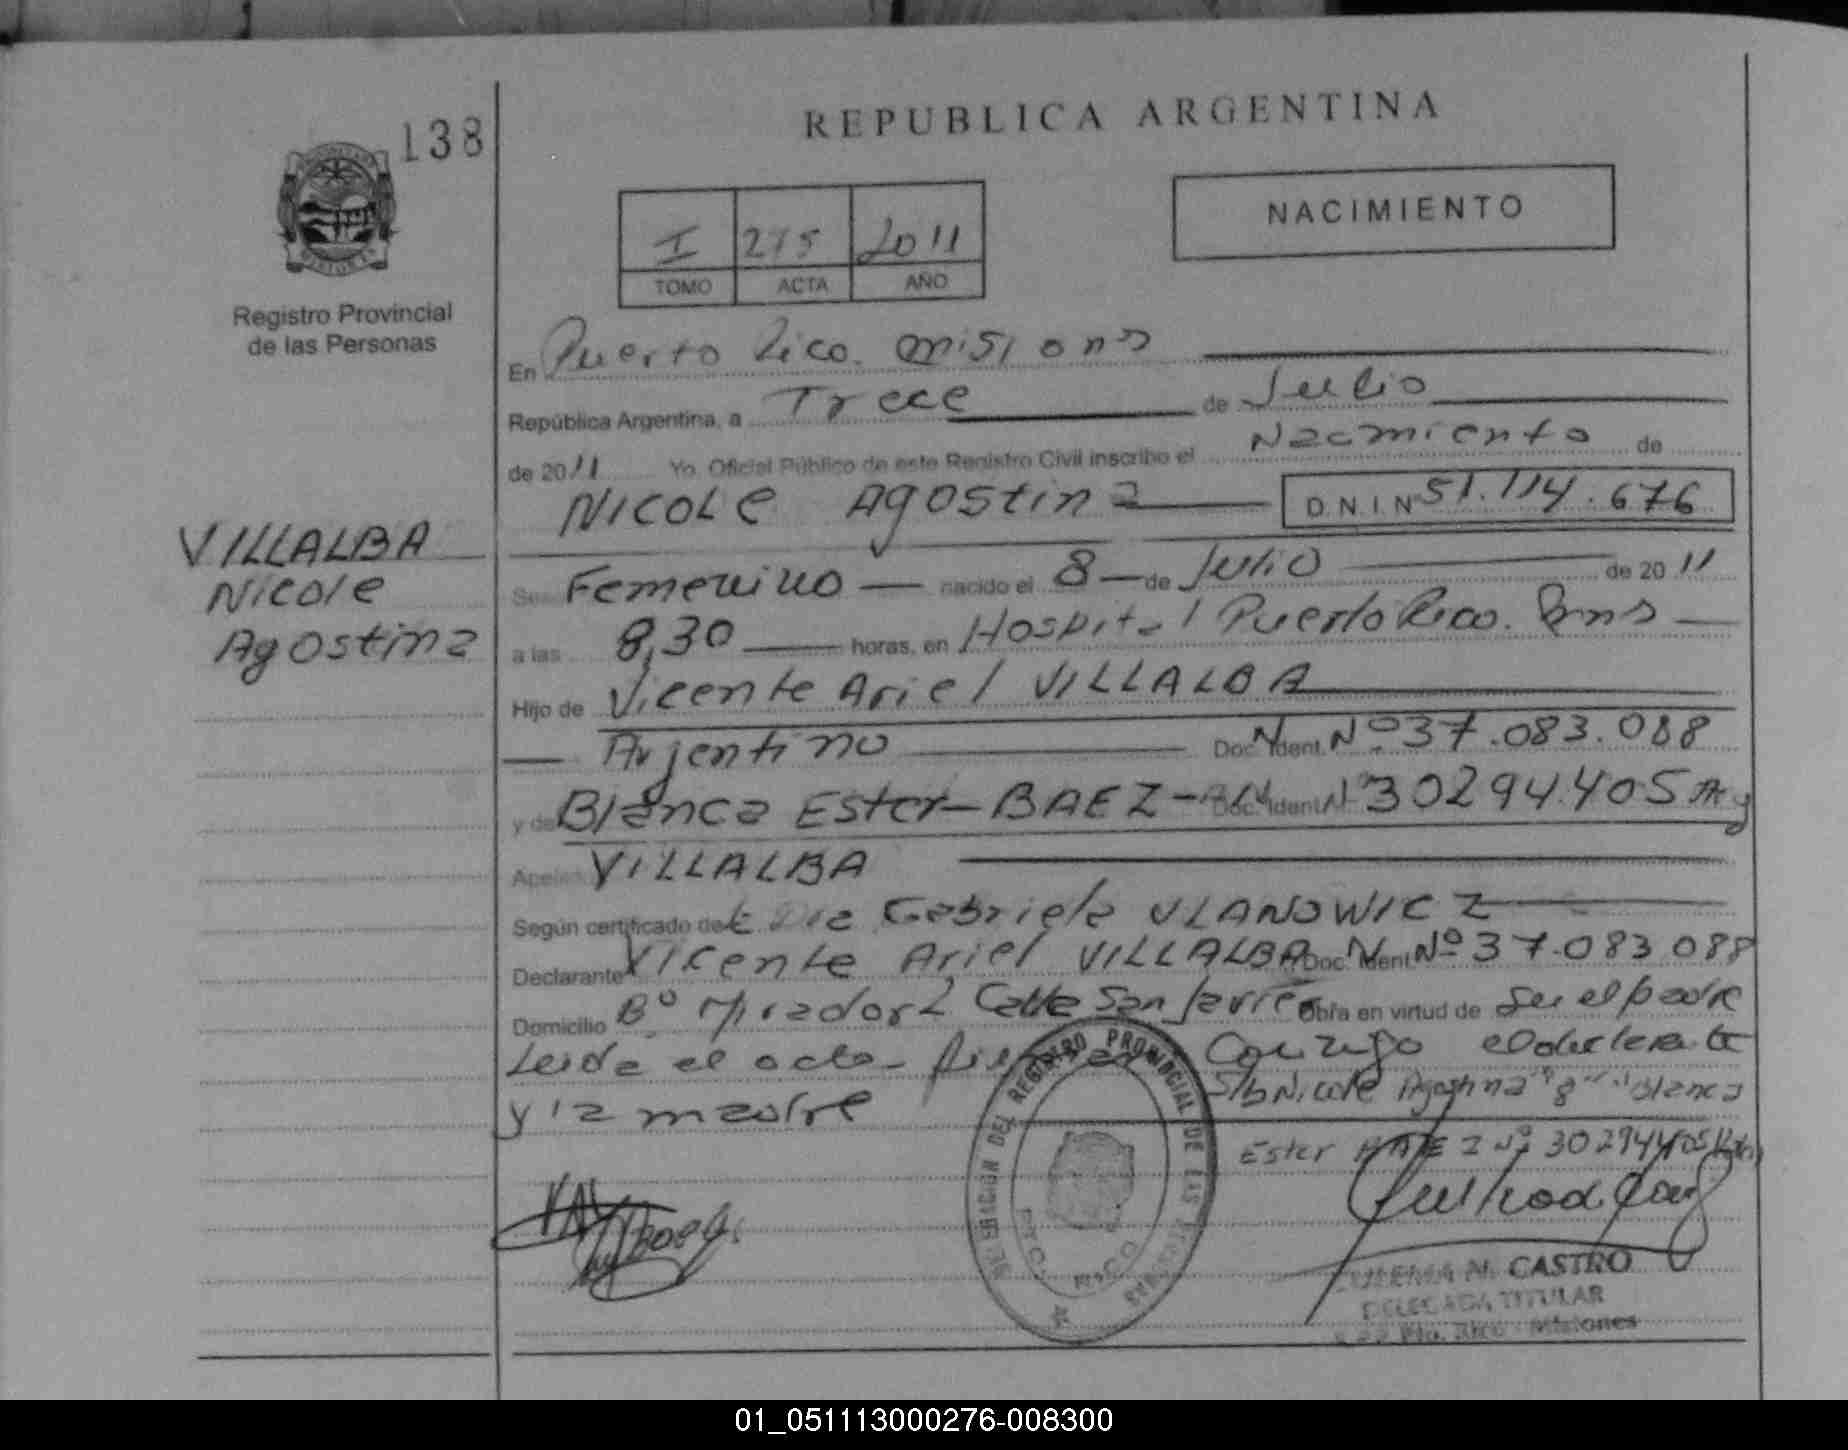 138
REPUBLICA ARGENTINA
NACIMIENTO
I 275 2011
TOMO ACTA AÑO
Registro Provincial
de las Personas
En Puerto Rico. misiones
República Argentina, a Trece de Julio
de 2011 Yo, Oficial Público de este Registro Civil inscribo el Nacimiento de
Nicole Agostina D.N.I. Nº 51.114.676
VILLALBA
Nicole
Agostina
Sexo Femenino nacido el 8 de Julio de 2011
a las 8,30 horas, en Hospital Puerto Rico.
Hijo de Vicente Ariel VILLALBA
Arjentino Doc. Ident. Nº 37.083.088
y de Blanca Ester BAEZ Doc. Ident. Nº 30294.405
Apellido VILLALBA
Según certificado de Dra Gabriela ULANOWICZ
Declarante Vicente Ariel VILLALBA Doc. Ident. Nº 37.083.088
Domicilio Bº Mirador 2 Calle San Javier Obra en virtud de Ser el padre
Leida el acta Conmigo el declarante
y la madre S/b Nicole Agostina "8" Blanca
Ester BAEZ Nº 30294405
REGISTRO PROVINCIAL DE LAS PERSONAS
PTO. RICO
M. CASTRO
DELEGADA TITULAR
Pto. Rico - Misiones
01_051113000276-008300